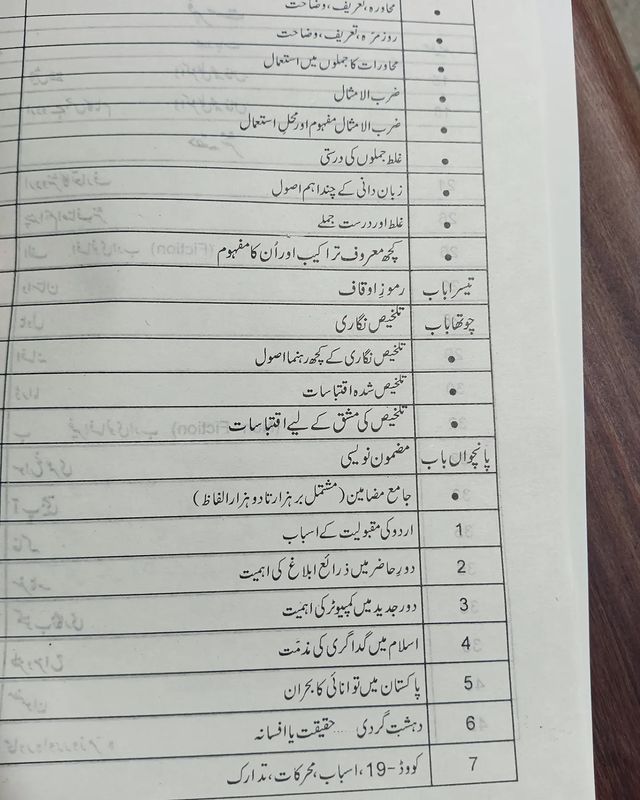 • محاورہ، تعریف، وضاحت
• روزمرّہ، تعریف، وضاحت
• محاورات کا جملوں میں استعمال
• ضرب الامثال
• ضرب الامثال مفہوم اور محلِ استعمال
• غلط جملوں کی درستی
• زبان دانی کے چند اہم اصول
• غلط اور درست جملے
• کچھ معروف تراکیب اور اُن کا مفہوم
تیسرا باب رموزِ اوقاف
چوتھا باب تلخیص نگاری
• تلخیص نگاری کے کچھ رہنما اصول
• تلخیص شدہ اقتباسات
• تلخیص کی مشق کے لیے اقتباسات
پانچواں باب مضمون نویسی
• جامع مضامین (مشتمل بر ہزار تا دو ہزار الفاظ)
1 اردو کی مقبولیت کے اسباب
2 دورِ حاضر میں ذرائع ابلاغ کی اہمیت
3 دور جدید میں کمپیوٹر کی اہمیت
4 اسلام میں گداگری کی مذمّت
5 پاکستان میں توانائی کا بحران
6 دہشت گردی ..... حقیقت یا افسانہ
7 کووڈ-19، اسباب، محرکات، تدارک